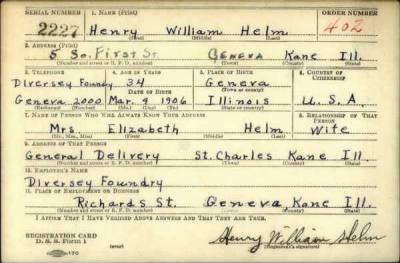 SERIAL NUMBER 1. NAME (Print) ORDER NUMBER
2227 Henry William Helm 402
(First) (Middle) (Last)
2. ADDRESS (Print)
5 So. First St. Geneva Kane Ill.
(Number and street or R. F. D. number) (Town) (County) (State)
3. TELEPHONE 4. AGE IN YEARS 5. PLACE OF BIRTH 6. COUNTRY OF CITIZENSHIP
Diversey Foundry 34 Geneva
DATE OF BIRTH (Town or county)
Geneva 2000 Mar. 9 1906 Illinois U.S.A.
(Exchange) (Number) (Mo.) (Day) (Yr.) (State or country)
7. NAME OF PERSON WHO WILL ALWAYS KNOW YOUR ADDRESS 8. RELATIONSHIP OF THAT PERSON
Mrs. Elizabeth Helm Wife
(Mr., Mrs., Miss) (First) (Middle) (Last)
9. ADDRESS OF THAT PERSON
General Delivery St. Charles Kane Ill.
(Number and street or R. F. D. number) (Town) (County) (State)
10. EMPLOYER'S NAME
Diversey Foundry
11. PLACE OF EMPLOYMENT OR BUSINESS
Richards St. Geneva Kane Ill.
(Number and street or R. F. D. number) (Town) (County) (State)
I AFFIRM THAT I HAVE VERIFIED ABOVE ANSWERS AND THAT THEY ARE TRUE.
REGISTRATION CARD
D. S. S. Form 1 (over) Henry William Helm
(Registrant's signature)